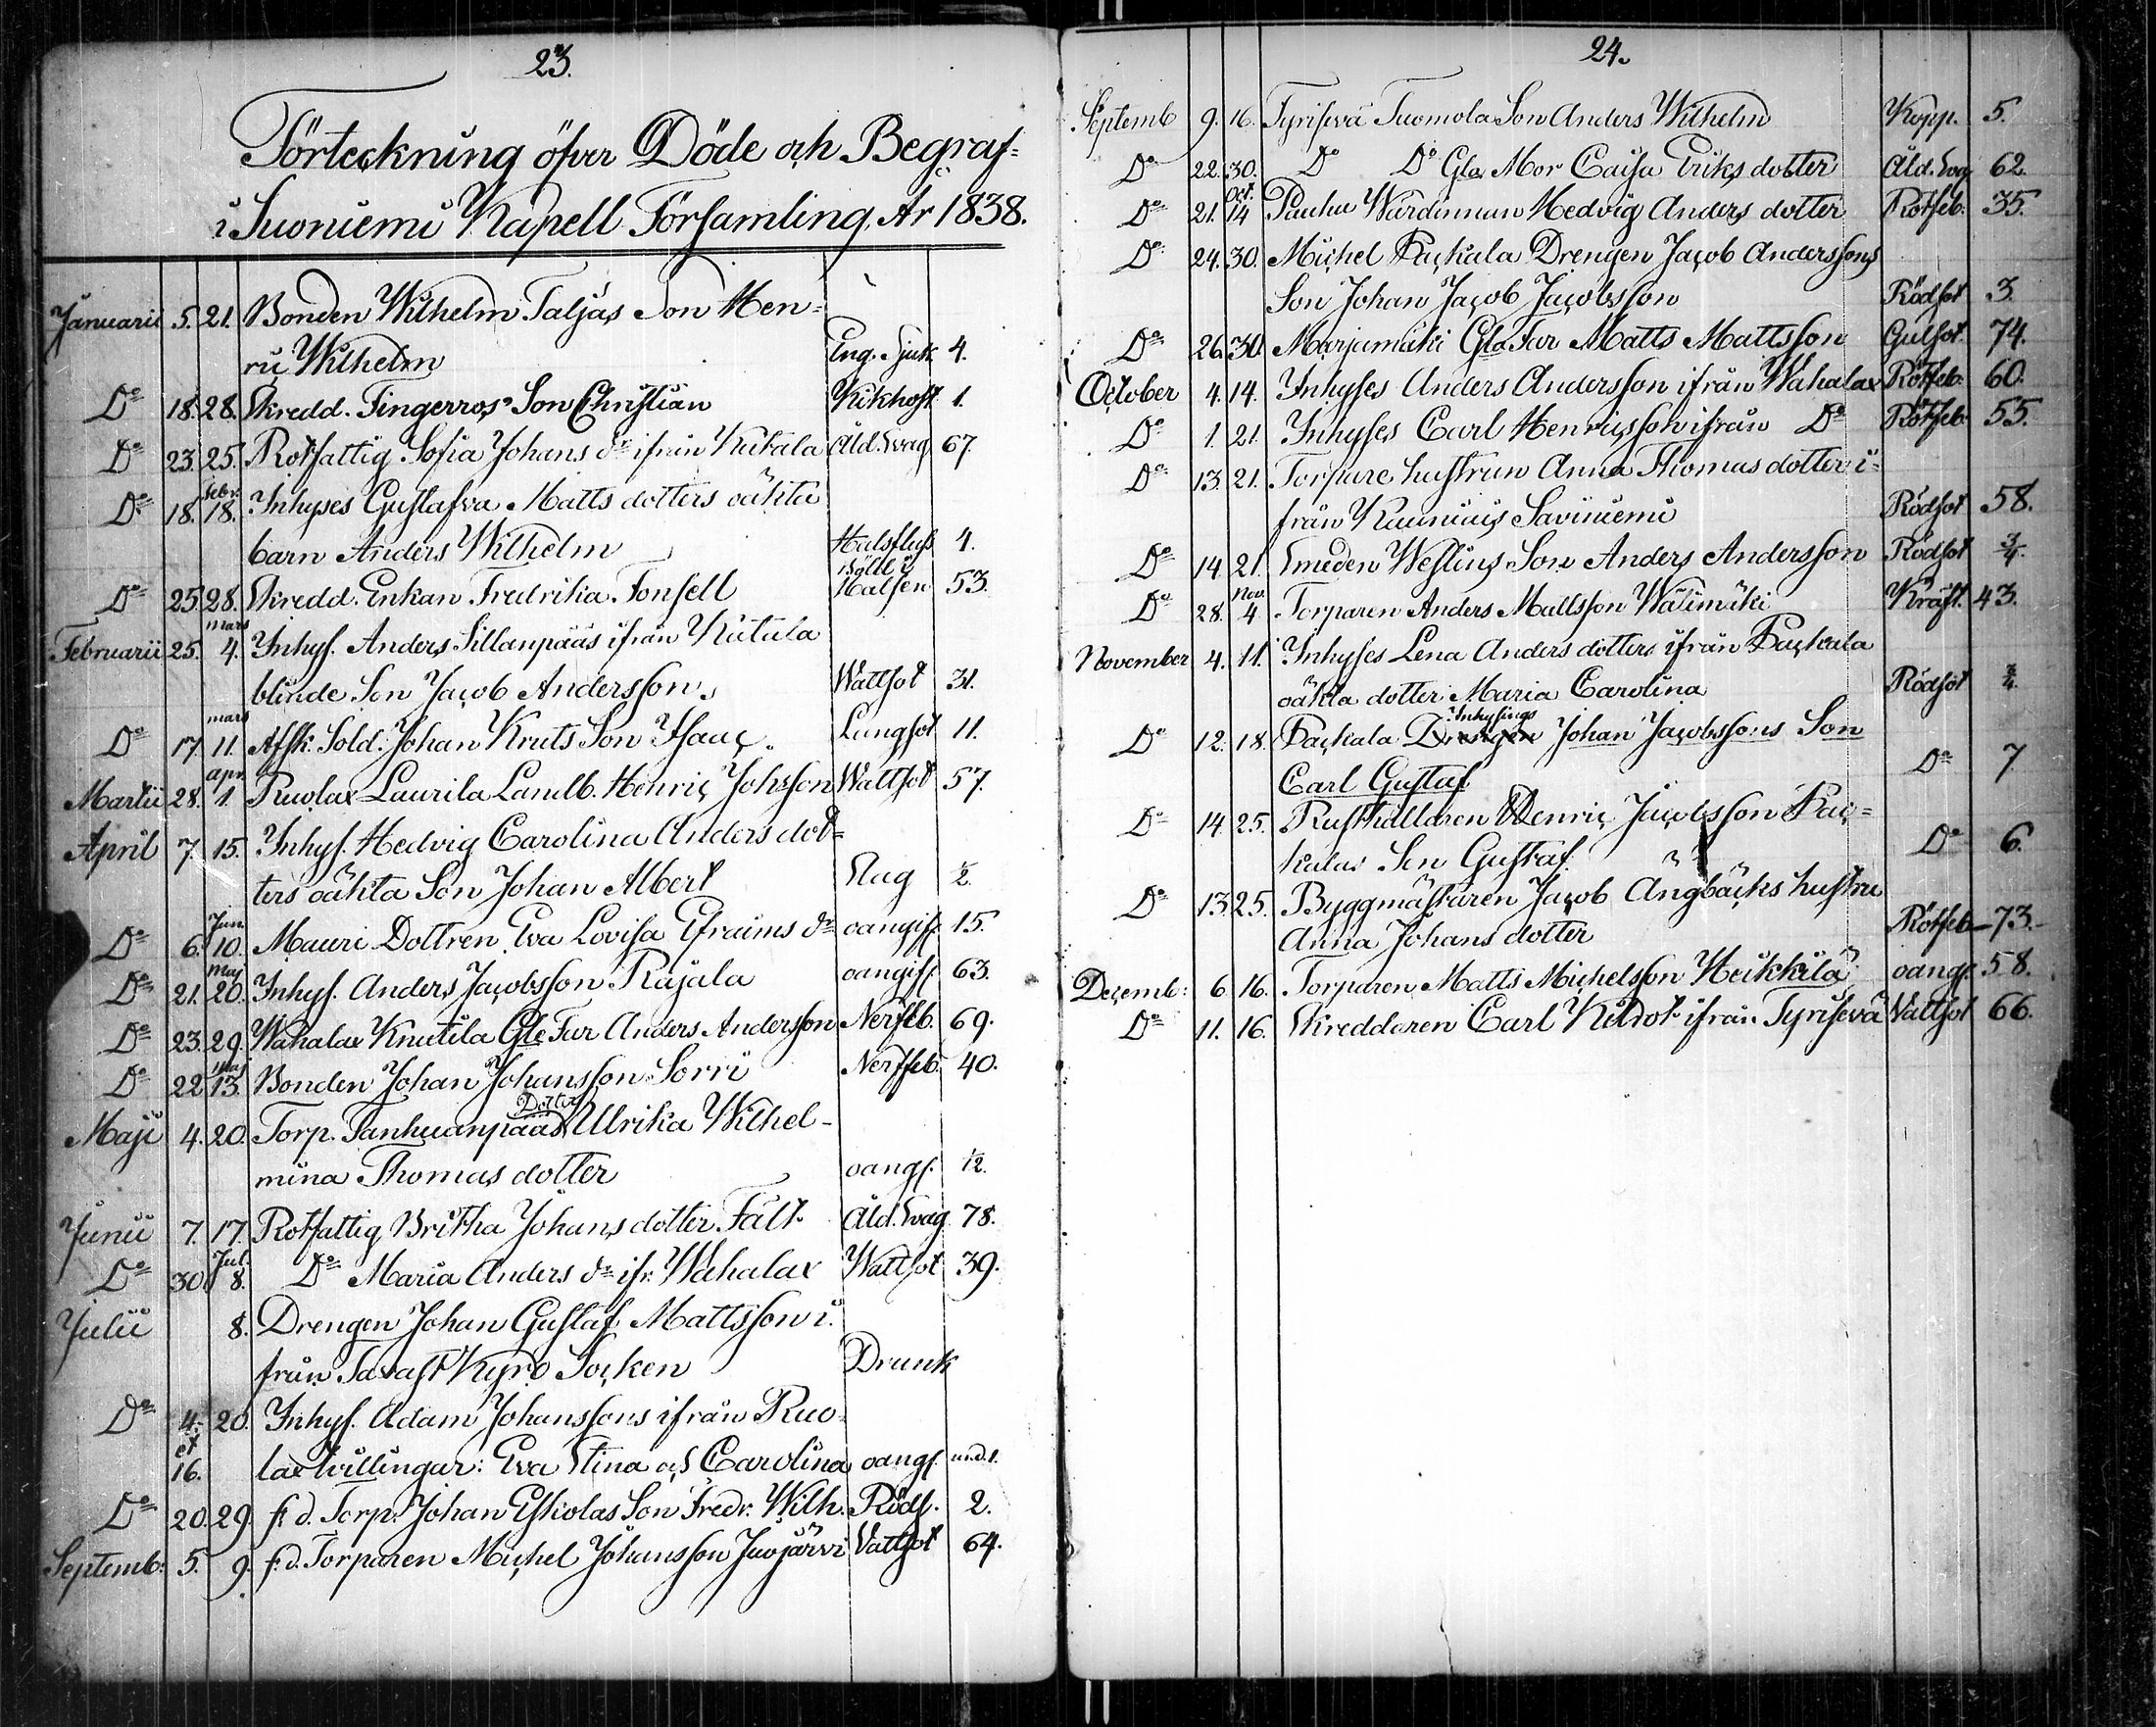 23.
Förteckning öfver Döde och Begraf=
i Suoniemi Kapell Församling År 1838.
Januarii 5. 21. Bonden Wilhelm Taljas Son Hen=
ric Wilhelm Eng. Sjuk 4.
Do 18. 28. Skredd. Fingerros Son Christian Kikhost 1.
Do 23. 25. Rotfattig Sofia Johans dr ifrån Kutala Åld. svag 67.
Do 18. febr. 18. Inhyses Gustafva Matts dotters oäkta
barn Anders Wilhelm Halsfluss 4.
Do 25. 28. Skredd. Enkan Fredrika Fonsell Böld i Halsen 53.
Februarii 25. mars 4. Inhys. Anders Sillanpääs ifrån Kutala
blinde Son Jacob Andersson. Wattsot 31.
Do 17. mars 11. Afsk. Sold. Johan Kruts Son Isaac. Lungsot 11.
Martii 28. apr. 1. Ruolax Laurila Landb. Henric Johsson Wattsot 57.
April 7. 15. Inhys. Hedvig Carolina Anders dot=
ters oäkta Son Johan Albert Slag ½.
Do 6. Jun. 10. Mauri Dottren Eva Lovisa Efraims dr oangif. 15.
Do 21. maj 20. Inhys. Anders Jacobsson Rajala oangif. 63.
Do 23. 29. Wahalax Knutila Gle Far Anders Andersson Nerffeb. 69.
Do 22. maj 13. Bonden Johan Johansson Sorri Nerffeb. 40.
Maji 4. 20. Torp. Tanhuanpääs Dotter Ulrika Wilhel-
mina Thomas dotter oangf. ½.
Junii 7. 17. Rotfattig Britha Johans dotter Fält Åld. svag 78.
Do 30. Jul. 8. Do Maria Anders dr ifr. Wahalax Wattsot 39.
Julii 8. Drengen Johan Gustaf Mattsson i
från Tavast Kyro Socken Drunk
Do 4. 20. Inhys. Adam Johanssons ifrån Ruo-
et 16. lax tvillingar: Eva Stina och Carolina oangf. und. 1.
Do 20. 29. f. d. Torp. Johan Eskolas Son Fredr. Wilh. Röds. 2.
Septemb: 5. 9. f. d. Torparen Michel Johansson Juojärvi Vattsot 64.
24.
Septemb 9. 16. Tyrisevä Tuomola Son Anders Wilhelm Kopp. 5.
Do 22. 30. Do Do Gla Mor Caisa Eriks dotter Åld. svag 62.
Do 21. Oct. 14 Pauhu Värdinnan Hedvig Anders dotter Rötfeb. 35.
Do 24. 30. Michel Packala Drengen Jacob Anderssons
Son Johan Jacob Jacobsson Rödsot 3.
Do 26. 30. Marjamäki Gla Far Matts Mattsson Gulsot. 74.
October 4. 14. Inhyses Anders Andersson ifrån Wahalax Rötfeb. 60.
Do 1. 21. Inhyses Carl Henricsson ifrån Do Rötfeb. 55.
Do 13. 21. Torpare hustrun Anna Thomas dotter i=
från Kauniais Saviniemi Rödsot 58.
Do 14. 21. Smeden Weslins Son Anders Andersson Rödsot ¾.
Do 28. Nov. 4. Torparen Anders Mattsson Wälimäki Kräft. 43.
November 4. 11. Inhyses Lena Anders dotters ifrån Packala
oäkta dotter Maria Carolina Rödsot ¾.
Do 12. 18. Packala Drengen Inhysings Johan Jacobssons Son
Carl Gustaf Do 7.
Do 14. 25. Rusthållaren Henric Jacobsson Pac=
kalas Son Gustaf Do 6.
Do 13. 25. Byggmästaren Jacob Ängbäcks hustru
Anna Johans dotter Rötfeb 73.
Decemb: 6. 16. Torparen Matts Michelsson Heikkilä oangf. 58.
Do 11. 16. Skreddaren Carl Kildot ifrån Tyrisevä Vattsot 66.